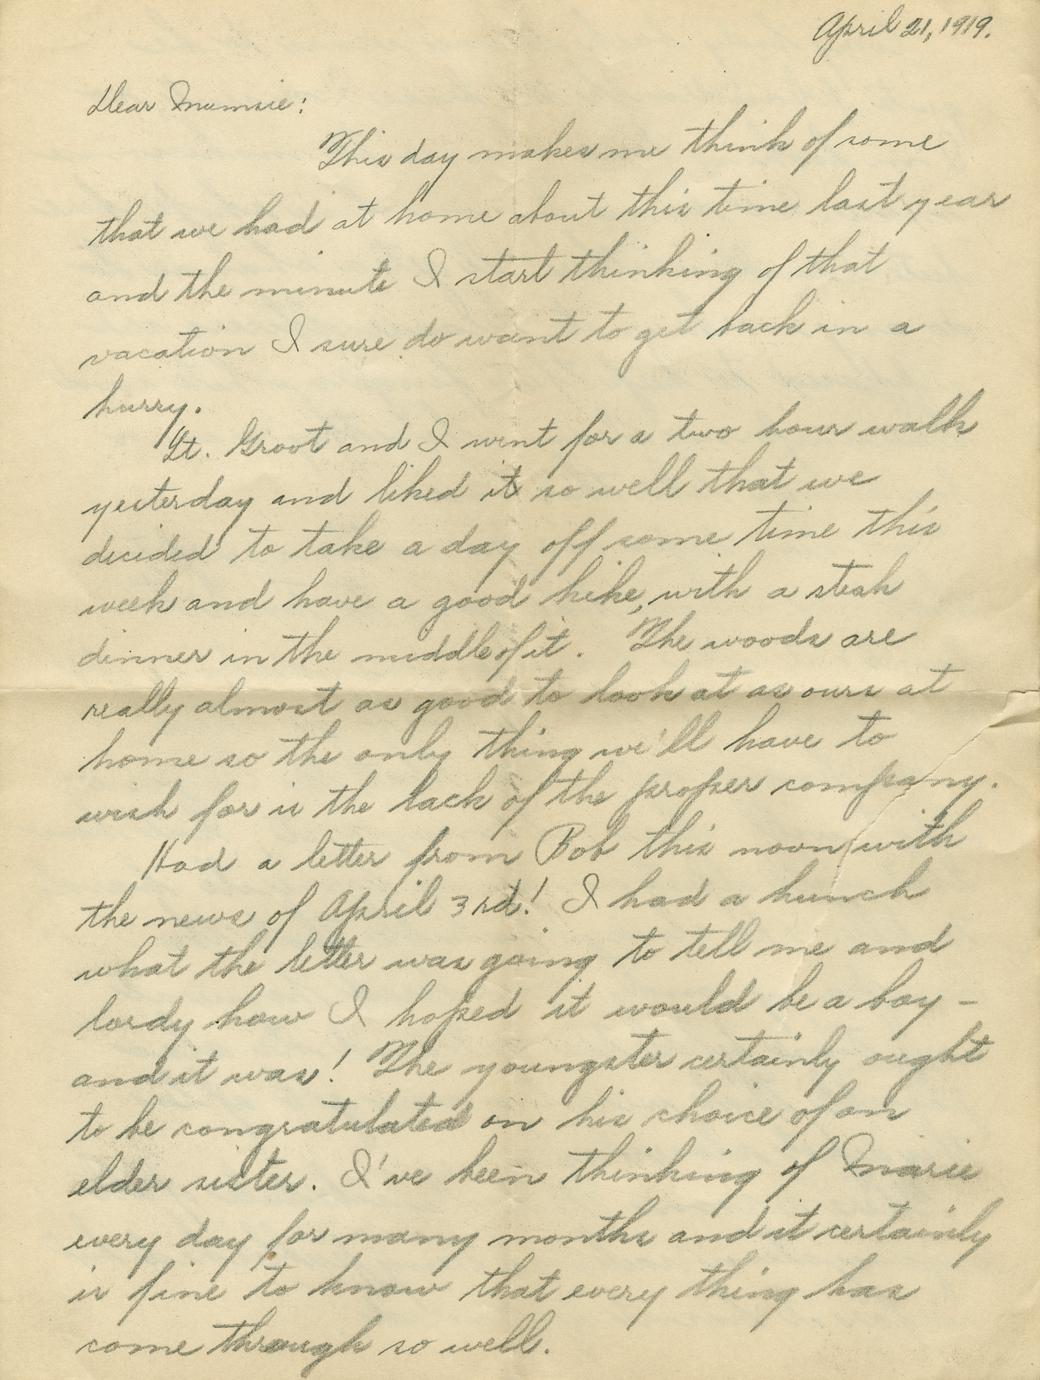 April 21, 1919.
Dear Mumsie:
This day makes me think of some
that we had at home about this time last year
and the minute I start thinking of that
vacation I sure do want to get back in a
hurry.
Lt. Groot and I went for a two hour walk
yesterday and liked it so well that we
decided to take a day off some time this
week and have a good hike, with a steak
dinner in the middle of it. The woods are
really almost as good to look at as ours at
home so the only thing we'll have to
wish for is the lack of the proper company.
Had a letter from Bob this noon with
the news of April 3rd! I had a hunch
what the letter was going to tell me and
lordy how I hoped it would be a boy –
and it was! The youngster certainly ought
to be congratulated on his choice of an
elder sister. I've been thinking of Marie
every day for many months and it certainly
is fine to know that every thing has
come through so well.